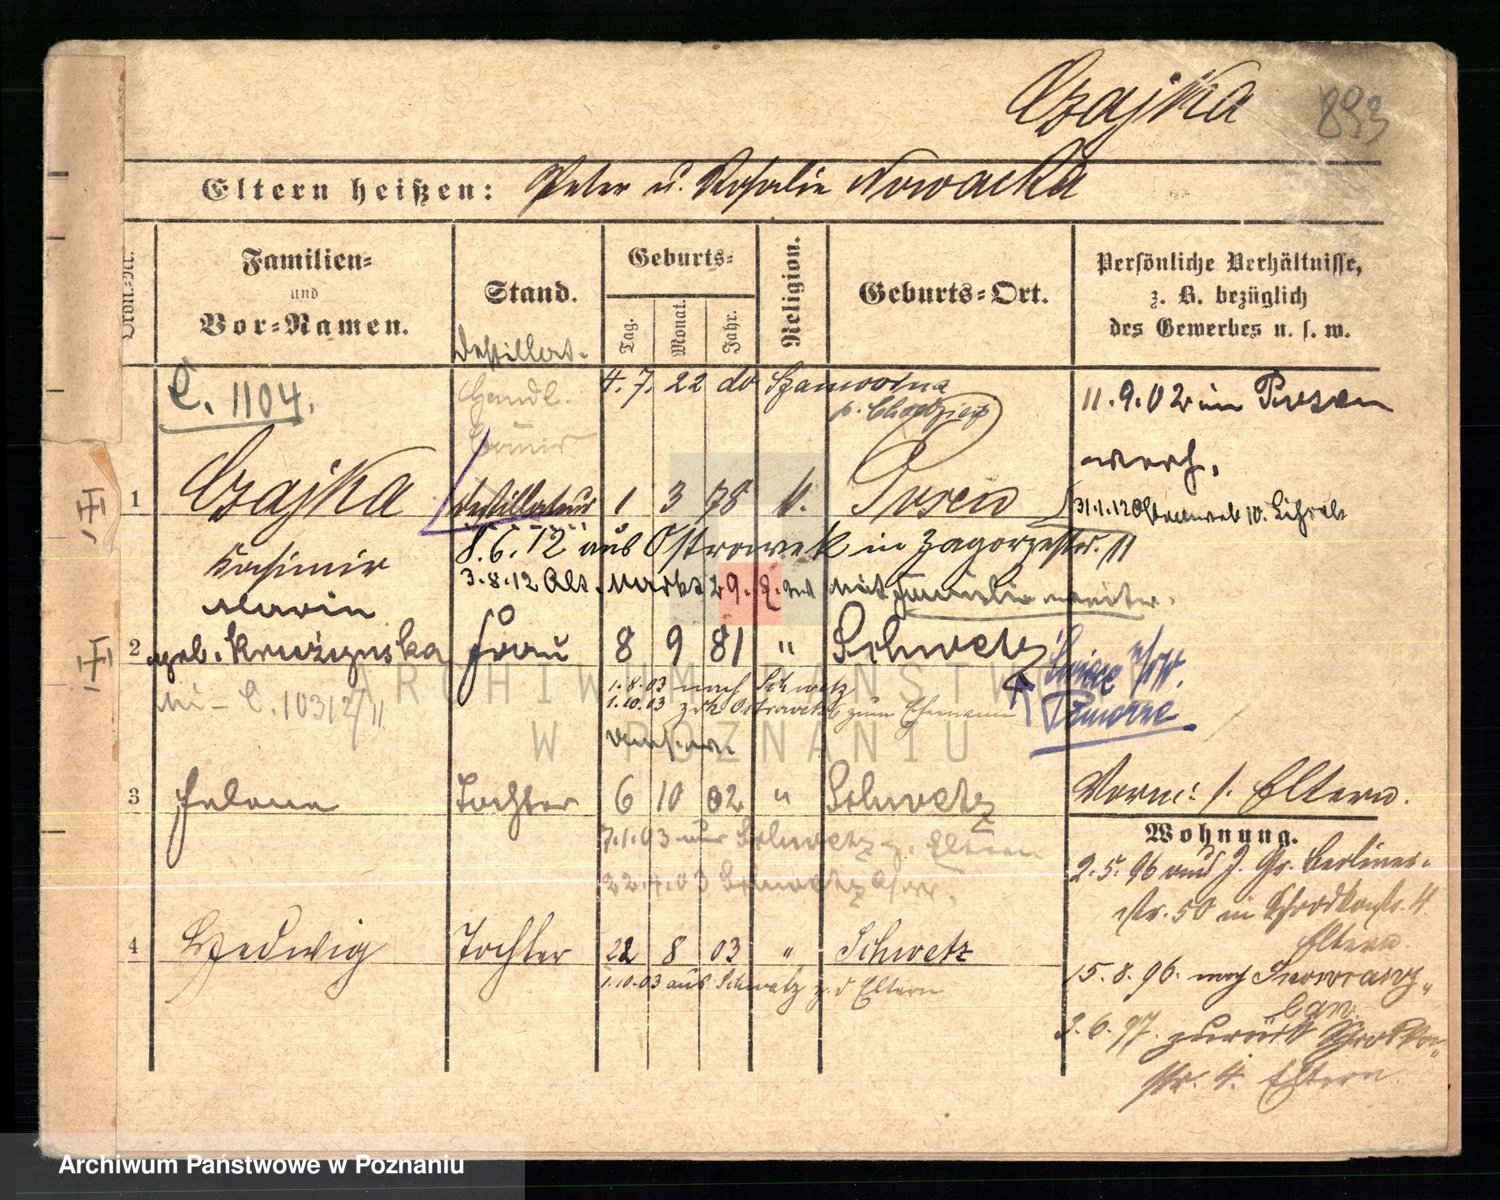 Czajka 893
Eltern heißen: Peter u. Rosalie Nowacka
Ordn.-Nr.
Familien-
und
Vor-Namen.
Stand.
Geburts-
Tag.
Monat.
Jahr.
Religion.
Geburts-Ort.
Persönliche Verhältnisse,
z. B. bezüglich
des Gewerbes u. s. w.
Destillat.
C. 1104.
Handl.
4. 7. 22 do Szamocin
p. Chodzież
11. 9. 02 in Posen
verh.
1 Czajka Destillateur 1 3 78 k. Posen
31.1.12
Kasimir
8.6.12 aus Ostrowek in Zagorzestr. 11
3.8.12 Alt. Markt 29. mit Familie weiter.
Marie
2 geb. Krużynska Frau 8 9 81 " Schwetz
C. 10312/11
1.8.03 nach Schwetz
1.10.03 zrk Ostrowek zum Ehemann
3 Helene Tochter 6 10 02 " Schwetz
7.1.03 aus Schwetz z. Eltern
22.4.03 Schwetz
4 Hedwig Tochter 22 8 03 " Schwetz
1.10.03 aus Schwetz z. d Eltern
Eltern.
Wohnung.
2.5.96 aus Gr. Berliner-
str. 50 in Schrodkastr. 4
Eltern
15.8.96. nach Inowraz-
law.
2.6.97. zurück Schrodka-
str. 4. Eltern.
ARCHIWUM PAŃSTWOWE
W POZNANIU
Archiwum Państwowe w Poznaniu